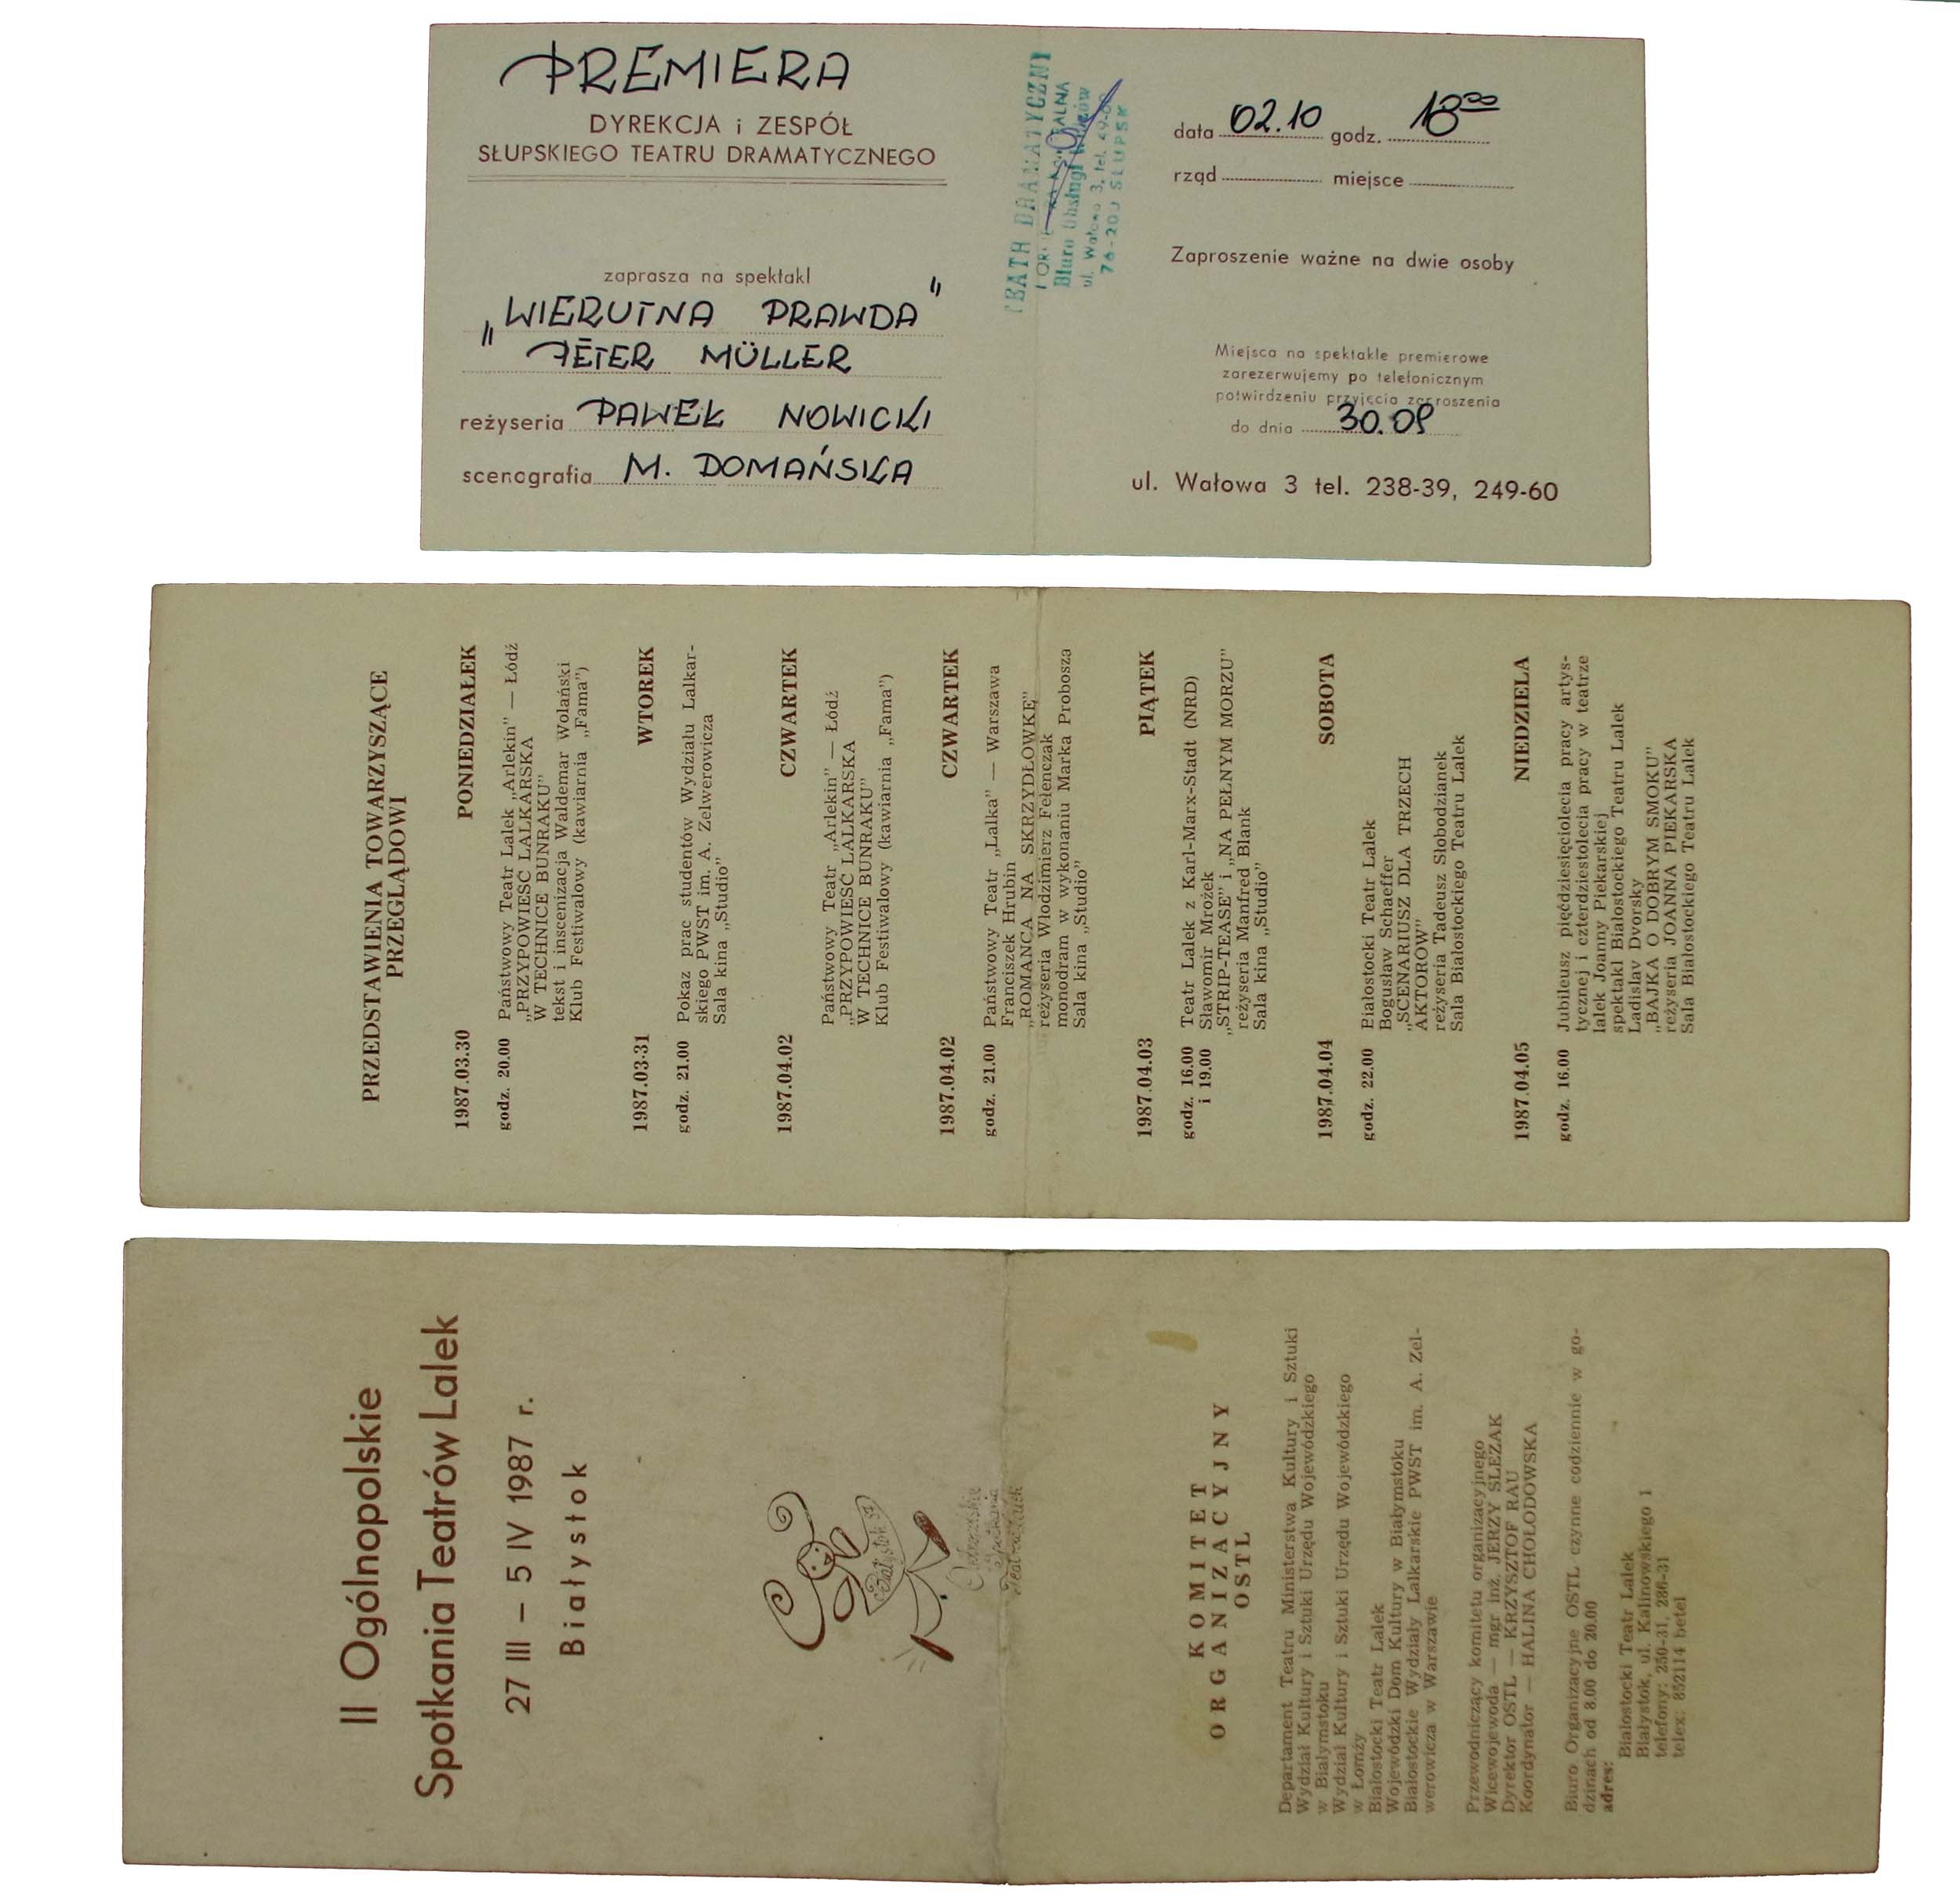 PREMIERA
DYREKCJA i ZESPÓŁ
SŁUPSKIEGO TEATRU DRAMATYCZNEGO
zaprasza na spektakl
„WIERUTNA PRAWDA”
PÉTER MÜLLER
reżyseria PAWEŁ NOWICKI
scenografia M. DOMAŃSKA
TEATR DRAMATYCZNY
Biuro Obsługi Widzów
ul. Wałowa 3, tel. 49-60
76-200 SŁUPSK
data 02.10 godz. 18⁰⁰
rząd miejsce
Zaproszenie ważne na dwie osoby
Miejsca na spektakle premierowe
zarezerwujemy po telefonicznym
potwierdzeniu przyjęcia zaproszenia
do dnia 30.09
ul. Wałowa 3 tel. 238-39, 249-60
PRZEDSTAWIENIA TOWARZYSZĄCE
PRZEGLĄDOWI
1987.03.30 PONIEDZIAŁEK
godz. 20.00 Państwowy Teatr Lalek „Arlekin” — Łódź
„PRZYPOWIEŚĆ LALKARSKA
W TECHNICE BUNRAKU”
tekst i inscenizacja Waldemar Wolański
Klub Festiwalowy (kawiarnia „Fama”)
1987.03.31 WTOREK
godz. 21.00 Pokaz prac studentów Wydziału Lalkar-
skiego PWST im. A. Zelwerowicza
Sala kina „Studio”
1987.04.02 CZWARTEK
Państwowy Teatr „Arlekin” — Łódź
„PRZYPOWIEŚĆ LALKARSKA
W TECHNICE BUNRAKU”
Klub Festiwalowy (kawiarnia „Fama”)
1987.04.02 CZWARTEK
godz. 21.00 Państwowy Teatr „Lalka” — Warszawa
Franciszek Hrubin
„ROMANCA NA SKRZYDŁÓWKĘ”
reżyseria Włodzimierz Felenczak
monodram w wykonaniu Marka Probosza
Sala kina „Studio”
1987.04.03 PIĄTEK
godz. 16.00 Teatr Lalek z Karl-Marx-Stadt (NRD)
i 19.00 Sławomir Mrożek
„STRIP-TEASE” i „NA PEŁNYM MORZU”
reżyseria Manfred Blank
Sala kina „Studio”
1987.04.04 SOBOTA
godz. 22.00 Białostocki Teatr Lalek
Bogusław Schaeffer
„SCENARIUSZ DLA TRZECH
AKTORÓW”
reżyseria Tadeusz Słobodzianek
Sala Białostockiego Teatru Lalek
1987.04.05 NIEDZIELA
godz. 16.00 Jubileusz pięćdziesięciolecia pracy artys-
tycznej i czterdziestolecia pracy w teatrze
lalek Joanny Piekarskiej
spektakl Białostockiego Teatru Lalek
Ladislav Dvorsky
„BAJKA O DOBRYM SMOKU”
reżyseria JOANNA PIEKARSKA
Sala Białostockiego Teatru Lalek
II Ogólnopolskie
Spotkania Teatrów Lalek
27 III – 5 IV 1987 r.
Białystok
Białystok 87
Ogólnopolskie
Spotkania
Teatrów Lalek
KOMITET
ORGANIZACYJNY
OSTL
Departament Teatru Ministerstwa Kultury i Sztuki
Wydział Kultury i Sztuki Urzędu Wojewódzkiego
w Białymstoku
Wydział Kultury i Sztuki Urzędu Wojewódzkiego
w Łomży
Białostocki Teatr Lalek
Wojewódzki Dom Kultury w Białymstoku
Białostockie Wydziały Lalkarskie PWST im. A. Zel-
werowicza w Warszawie
Przewodniczący komitetu organizacyjnego
Wicewojewoda — mgr inż. JERZY ŚLEZAK
Dyrektor OSTL — KRZYSZTOF RAU
Koordynator — HALINA CHOŁODOWSKA
Biuro Organizacyjne OSTL czynne codziennie w go-
dzinach od 8.00 do 20.00
adres:
Białostocki Teatr Lalek
Białystok, ul. Kalinowskiego 1
telefony: 250-31, 286-31
telex: 852114 betel